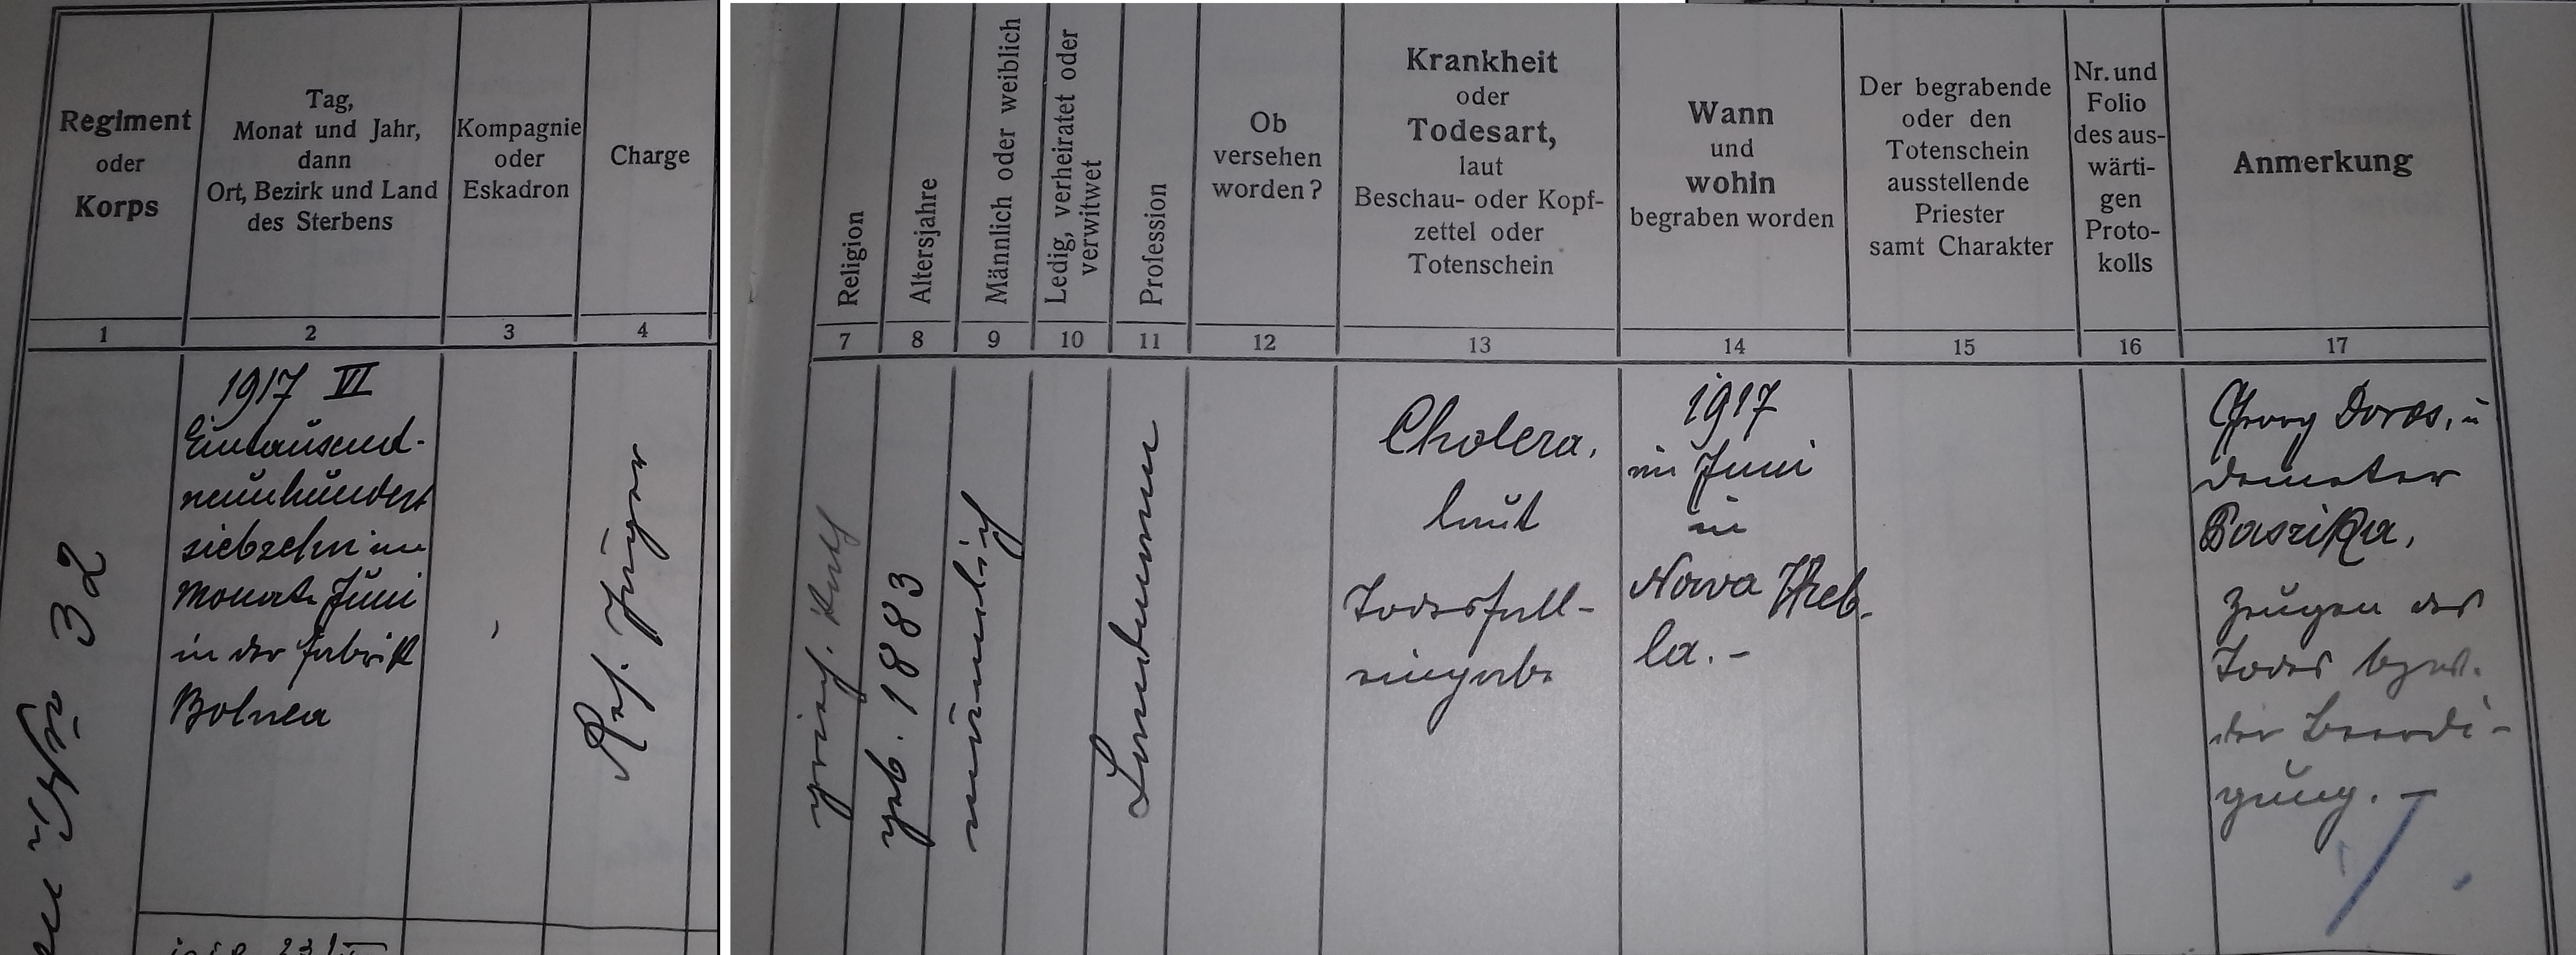 Regiment
oder
Korps
Tag,
Monat und Jahr,
dann
Ort, Bezirk und Land
des Sterbens
Kompagnie
oder
Eskadron
Charge
1
2
3
4
Nr 32
1917 VI
Eintausend-
neunhundert
siebzehn im
Monate Juni
in der Fabrik
Bolnea
Res. Jäger
Religion
Altersjahre
Männlich oder weiblich
Ledig, verheiratet oder
verwitwet
Profession
Ob
versehen
worden?
Krankheit
oder
Todesart,
laut
Beschau- oder Kopf-
zettel oder
Totenschein
Wann
und
wohin
begraben worden
Der begrabende
oder den
Totenschein
ausstellende
Priester
samt Charakter
Nr. und
Folio
des aus-
wärti-
gen
Proto-
kolls
Anmerkung
7
8
9
10
11
12
13
14
15
16
17
griech. kath
geb. 1883
männlich
Landmann
Cholera,
laut
Todesfall-
eingabe
1917
im Juni
in
Nowa
la. -
Georg Doros, u
Demeter
Paszika,
Zeugen des
Todes bzw.
der Beerdi-
gung. -